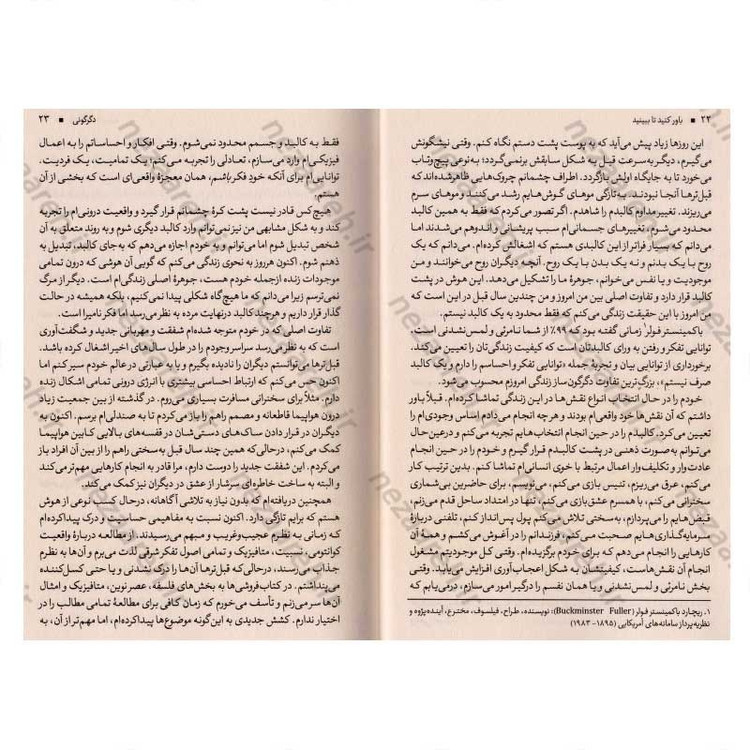 ۲۲ ■ باور کنید تا ببینید
این روزها زیاد پیش می‌آید که به پوست پشت دستم نگاه کنم. وقتی نیشگونش
می‌گیرم، دیگر به‌سرعت قبل به شکل سابقش برنمی‌گردد؛ به‌نوعی پیچ‌وتاب
می‌خورد تا به جایگاه اولش بازگردد. اطراف چشمانم چروک‌هایی ظاهر شده‌اند که
قبل‌ترها آنجا نبودند. به‌تازگی موهای گوش‌هایم رشد می‌کنند و موهای سرم
می‌ریزند. تغییر مداوم کالبدم را شاهدم. اگر تصور می‌کردم که فقط به همین کالبد
محدود می‌شوم، تغییرهای جسمانی‌ام سبب پریشانی و اندوهم می‌شدند اما
می‌دانم که بسیار فراتر از این کالبدی هستم که اشغالش کرده‌ام. می‌دانم که یک
روح با یک بدنم و نه یک بدن با یک روح. آنچه دیگران روح می‌خوانند و من
موجودیت و یا نفس می‌خوانم، جوهرهٔ ما را تشکیل می‌دهد. این هوش در پشت
کالبد قرار دارد و تفاوت اصلی بین من امروز و من چندین سال قبل در این است که
من امروز با این حقیقت زندگی می‌کنم که فقط محدود به یک کالبد نیستم.
باکمینستر فولر¹ زمانی گفته بود که ۹۹٪ از شما نامرئی و لمس‌نشدنی است.
توانایی تفکر و رفتن به ورای کالبدتان است که کیفیت زندگی‌تان را تعیین می‌کند.
برخورداری از توانایی بیان و تجربهٔ جمله «توانایی تفکر و احساسم را دارم و یک کالبد
صرف نیستم»، بزرگ‌ترین تفاوت دگرگون‌ساز زندگی امروزم محسوب می‌شود.
خودم را در حال انتخاب انواع نقش‌ها در این زندگی تماشا کرده‌ام. قبلاً باور
داشتم که آن نقش‌ها خود واقعی‌ام بودند و هرچه انجام می‌دادم اساس وجودی‌ام را
تعیین می‌کرد. کالبدم را در حین انجام انتخاب‌هایم تجربه می‌کنم و درعین‌حال
می‌توانم به‌صورت ذهنی در پشت کالبدم قرار گیرم و خودم را در حین انجام
عادت‌وار و تکلیف‌وار اعمال مرتبط با خوی انسانی‌ام تماشا کنم. بدین ترتیب کار
می‌کنم، عرق می‌ریزم، تنیس بازی می‌کنم، می‌نویسم، برای حاضرین بی‌شماری
سخنرانی می‌کنم، با همسرم عشق‌بازی می‌کنم، تنها در امتداد ساحل قدم می‌زنم،
قبض‌هایم را می‌پردازم، به‌سختی تلاش می‌کنم پول پس‌انداز کنم، تلفنی دربارهٔ
سرمایه‌گذاری‌هایم صحبت می‌کنم، فرزندانم را در آغوش می‌کشم و همهٔ آن
کارهایی را انجام می‌دهم که برای خودم برگزیده‌ام. وقتی کل موجودیتم مشغول
انجام آن نقش‌هاست، کیفیتشان به شکل اعجاب‌آوری افزایش می‌یابد. وقتی
بخش نامرئی و لمس‌نشدنی و یا همان نفسم را درگیر امور می‌سازم، درمی‌یابم که
۱. ریچارد باکمینستر فولر (Buckminster Fuller): نویسنده، طراح، فیلسوف، مخترع، آینده‌پژوه و
نظریه‌پرداز سامانه‌های آمریکایی (۱۸۹۵-۱۹۸۳)
دگرگونی ■ ۲۳
فقط به کالبد و جسمم محدود نمی‌شوم. وقتی افکار و احساساتم را به اعمال
فیزیکی‌ام وارد می‌سازم، تعادلی را تجربه می‌کنم؛ یک تمامیت، یک فردیت.
توانایی‌ام برای آنکه خودِ فکر باشم، همان معجزهٔ واقعی‌ای است که بخشی از آن
هستم.
هیچ‌کس قادر نیست پشت کرهٔ چشمانم قرار گیرد و واقعیت درونی‌ام را تجربه
کند و به شکل مشابهی من نیز نمی‌توانم وارد کالبد دیگری شوم و به روند متعلق به آن
شخص تبدیل شوم اما می‌توانم و به خودم اجازه می‌دهم که به‌جای کالبد، تبدیل به
ذهنم شوم. اکنون هرروز به نحوی زندگی می‌کنم که گویی آن هوشی که درون تمامی
موجودات زنده ازجمله خودم هست، جوهرهٔ اصلی زندگی‌ام است. دیگر از مرگ
نمی‌ترسم زیرا می‌دانم که ما هیچ‌گاه شکلی پیدا نمی‌کنیم، بلکه همیشه در حالت
گذار قرار داریم و هرچند کالبد درنهایت مرده به نظر می‌رسد اما فکر نامیرا است.
تفاوت اصلی که در خودم متوجه شده‌ام شفقت و مهربانی جدید و شگفت‌آوری
است که به نظر می‌رسد سراسر وجودم را در طول سال‌های اخیر اشغال کرده باشد.
قبل‌ترها می‌توانستم دیگران را نادیده بگیرم و یا به عبارتی در عالم خودم سیر کنم اما
اکنون حس می‌کنم که ارتباط احساسی بیشتری با انرژی درونی تمامی اشکال زنده
دارم. مثلاً برای سخنرانی مسافرت بسیاری می‌روم. در گذشته از بین جمعیت زیاد
درون هواپیما قاطعانه و مصمم راهم را باز می‌کردم تا به صندلی‌ام برسم. اکنون به
دیگران در قرار دادن ساک‌های دستی‌شان در قفسه‌های بالایی کابین هواپیما
کمک می‌کنم، درحالی‌که همین چند سال قبل به‌سختی راهم را از بین آن افراد باز
می‌کردم. این شفقت جدید را دوست دارم، مرا قادر به انجام کارهایی مهم‌تر می‌کند
و البته به ساخت خاطره‌ای سرشار از عشق در دیگران نیز کمک می‌کند.
همچنین دریافته‌ام که بدون نیاز به تلاشی آگاهانه، درحال کسب نوعی از هوش
هستم که برایم تازگی دارد. اکنون نسبت به مفاهیمی حساسیت و درک پیدا کرده‌ام
که زمانی به نظرم عجیب‌وغریب و مبهم می‌رسیدند. از مطالعه دربارهٔ واقعیت
کوانتومی، نسبیت، متافیزیک و تمامی اصول تفکر شرقی لذت می‌برم و آن‌ها به نظرم
جذاب می‌رسند، درحالی‌که قبل‌ترها آن‌ها را درک نشدنی و یا حتی کسل‌کننده
می‌پنداشتم. در کتاب‌فروشی‌ها به بخش‌های فلسفه، عصر نوین، متافیزیک و امثال
آن‌ها سر می‌زنم و تأسف می‌خورم که زمان کافی برای مطالعهٔ تمامی مطالب را در
اختیار ندارم. کشش جدیدی به این‌گونه موضوع‌ها پیدا کرده‌ام، اما مهم‌تر از آن، به
nezareh.ir